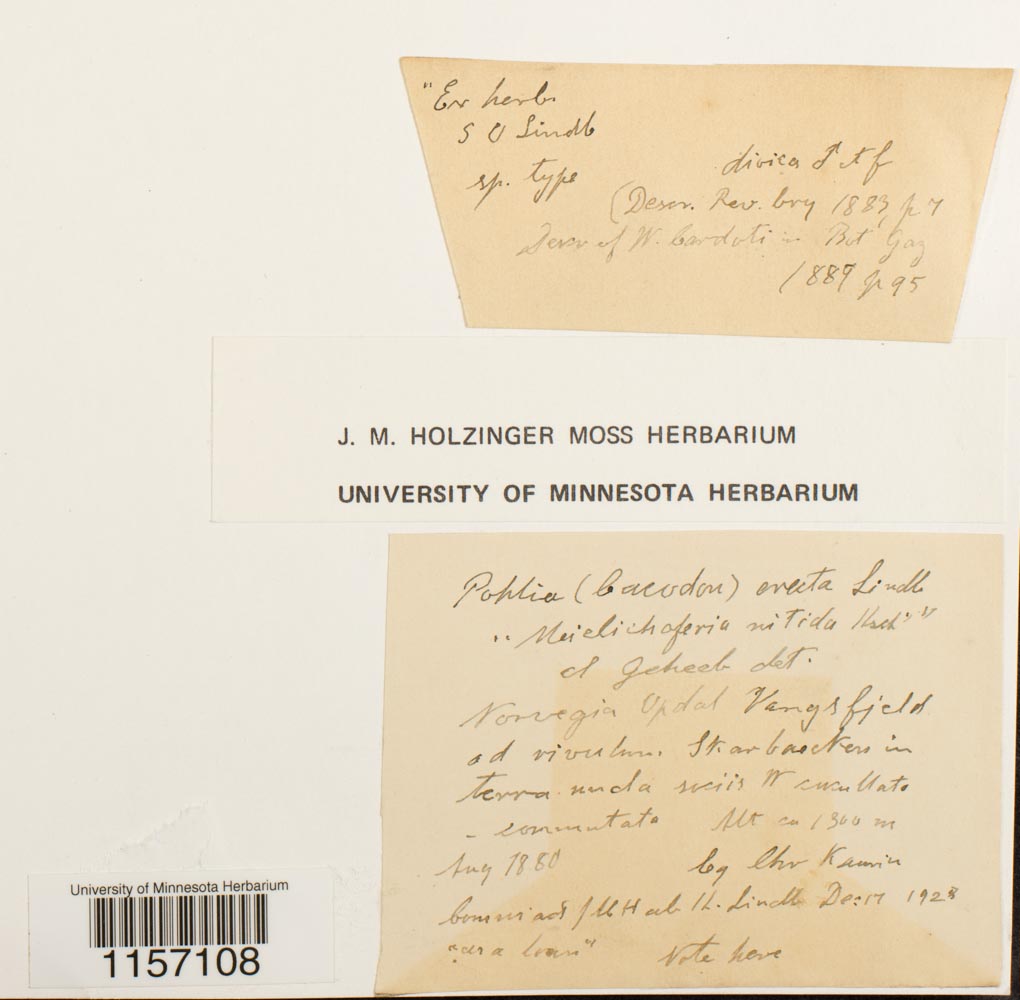 "Ex herb.
S O Lindb
sp. type
dioica ♂ et f
(Descr. Rev. bry 1883, p 7
Descr of W. Cardoti in Bot Gaz
1889 p 95
J. M. HOLZINGER MOSS HERBARIUM
UNIVERSITY OF MINNESOTA HERBARIUM
Pohlia (Cacodon) erecta Lindb
" Mielichoferia nitida
cl Geheeb det.
Norvegia Opdal Vangsfjeld
ad rivulum Skarbaekken in
terra nuda sociis W cucullata
- commutata Alt ca 1300 m
Aug 1880 leg Chr Kaurin
H. Lindb Dec 17 1928
"as a loan" Note here
University of Minnesota Herbarium
1157108